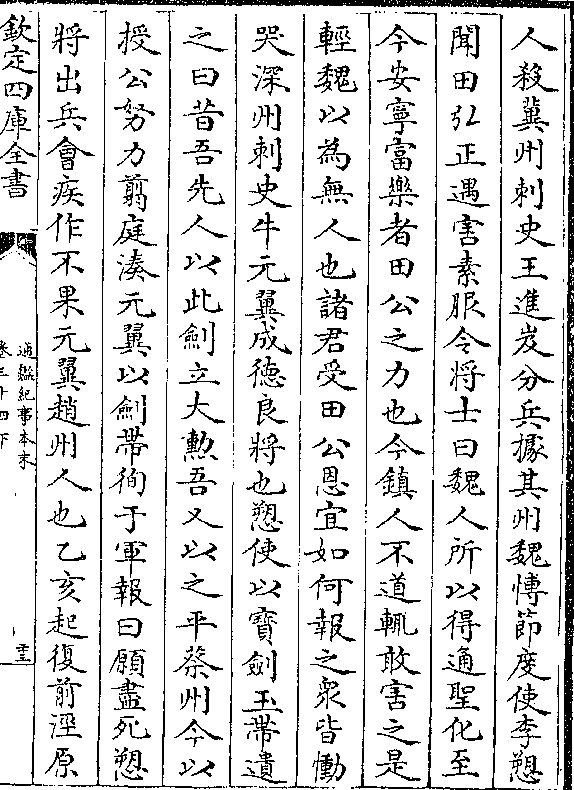 人殺冀州刺史王進岌分兵據其州魏愽節度使李愬
聞田弘正遇害素服令將士曰魏人所以得通聖化至
今安寧富樂者田公之力也今鎮人不道輒敢害之是
輕魏以為無人也諸君受田公恩宜如何報之衆皆慟
哭深州刺史牛元翼成德良將也愬使以寶劍玉帶遺
之曰昔吾先人以此劍立大勲吾又以之平蔡州今以
授公努力翦庭湊元翼以劍帶徇于軍報曰願盡死愬
將出兵會疾作不果元翼趙州人也乙亥起復前涇原
欽定四庫全書
通鑑紀事本末
卷三十四下